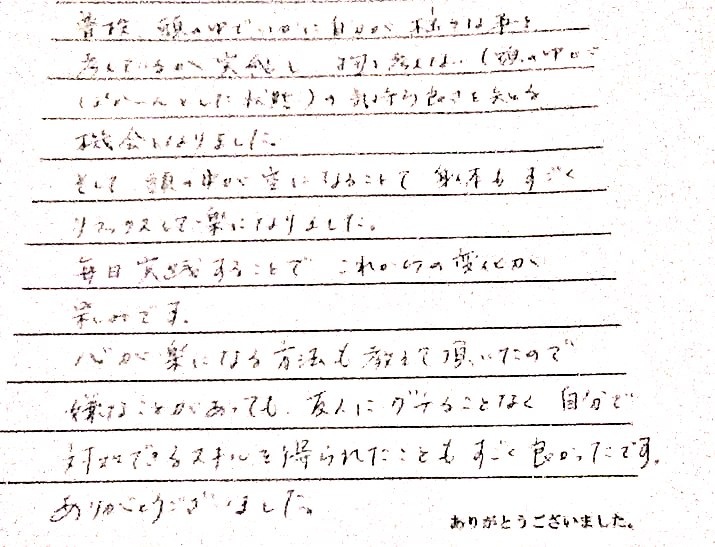 普段、頭の中でいかに自分が様々な事を
考えているか実感し、何も考えない（頭の中が
ぽかーんとした状態）の気持ち良さを知る
機会となりました。
そして頭の中が空になることで身体もすごく
リラックスして楽になりました。
毎日実践することでこれからの変化が
楽しみです。
心が楽になる方法も教えて頂いたので
嫌なことがあっても、友人にグチることなく自分で
対処できるスキルを得られたこともすごく良かったです。
ありがとうございました。
ありがとうございました。